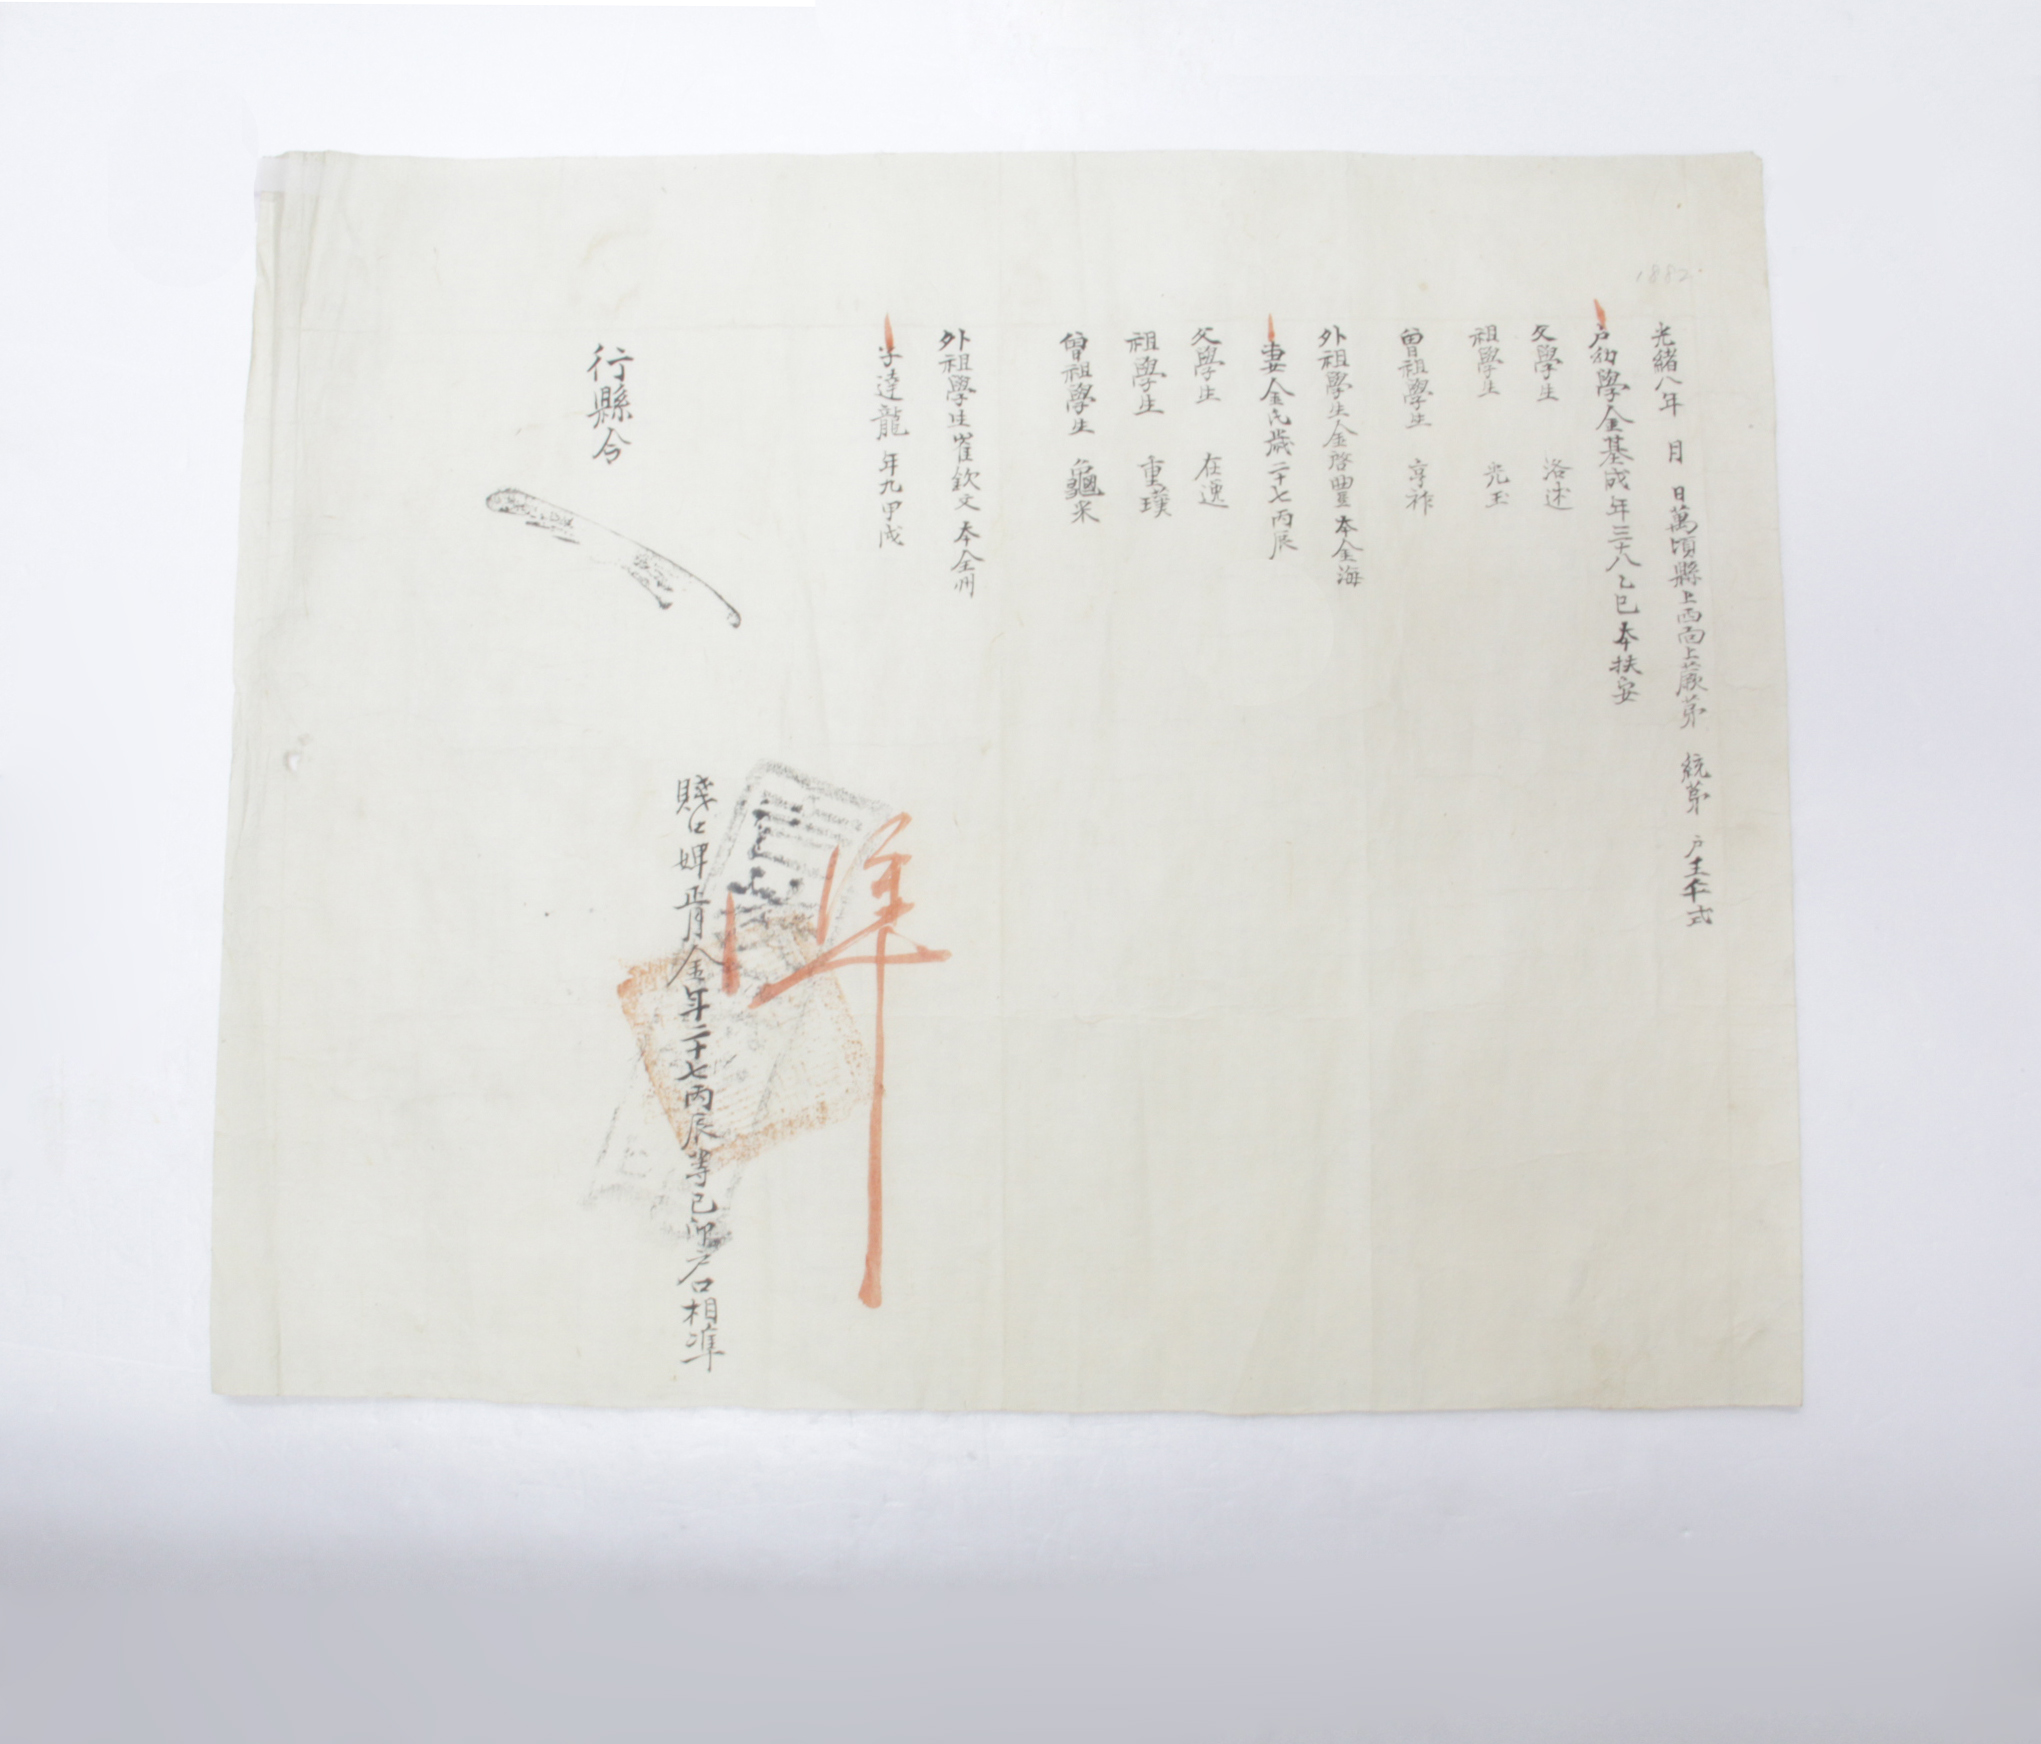 1882
光緖八年 月 日萬頃縣上西面上蕨苐 統苐 户壬午式
户幼學金基成年三十八乙巳本扶安
父學生 洛述
祖學生 光玉
曾祖學生 享祚
外祖學生金啓豊本金海
妻金氏歲二十七丙辰
父學生 在逸
祖學生 重璞
曾祖學生 龜采
外祖學生崔欽文本全州
子達龍年九甲戌
準
賤口婢正月金年二十七丙辰等已卯户口相準
行縣令